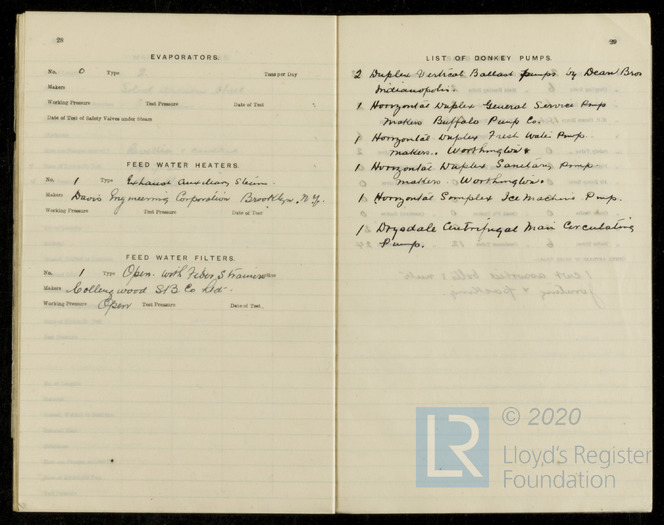 28
EVAPORATORS.
No. 0 Type Tons per Day
Makers
Working Pressure Test Pressure Date of Test
Date of Test of Safety Valves under Steam
FEED WATER HEATERS.
No. 1 Type Exhaust Auxiliary Steam
Makers Davis Engineering Corporation Brooklyn. N.Y.
Working Pressure Test Pressure Date of Test
FEED WATER FILTERS.
No. 1 Type Open. with Fiber Strainers
Makers Collingwood S.B. Co Ltd.
Working Pressure Open Test Pressure Date of Test
29
LIST OF DONKEY PUMPS.
2 Duplex Vertical Ballast pumps by Dean Bros
Indianopolis.
1 Horizontal Duplex General Service Pump
makers Buffalo Pump Co.
1 Horizontal Duplex Fresh Water Pump.
makers. Worthington
1 Horizontal Duplex Sanitary Pump.
makers. Worthington
1 Horizontal Simplex Ice Machine Pump.
1 Drysdale Centrifugal Main Circulating
Pump.
LR
© 2020
Lloyd's Register
Foundation